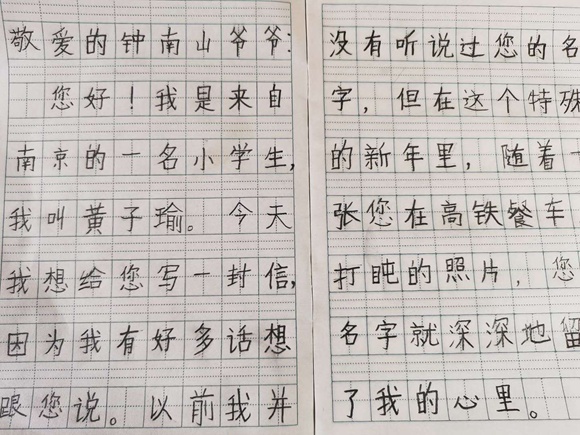 敬爱的钟南山爷爷:
您好！我是来自
南京的一名小学生,
我叫黄子瑜。今天
我想给您写一封信,
因为我有好多话想
跟您说。以前我并
没有听说过您的名
字，但在这个特殊
的新年里，随着一
张您在高铁餐车
打盹的照片，您
名字就深深地留
了我的心里。